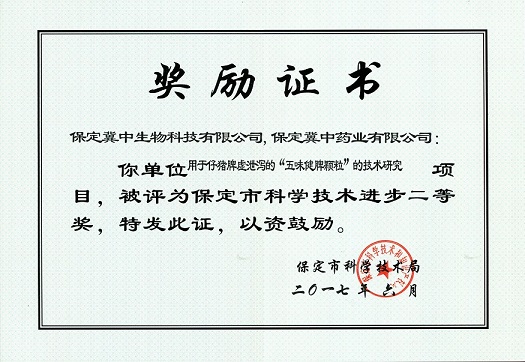 奖励证书
保定冀中生物科技有限公司,保定冀中药业有限公司:
你单位用于仔猪脾虚泄泻的“五味健脾颗粒”的技术研究 项
目，被评为保定市科学技术进步二等
奖，特发此证，以资鼓励。
保定市科学技术局
二〇一七年六月